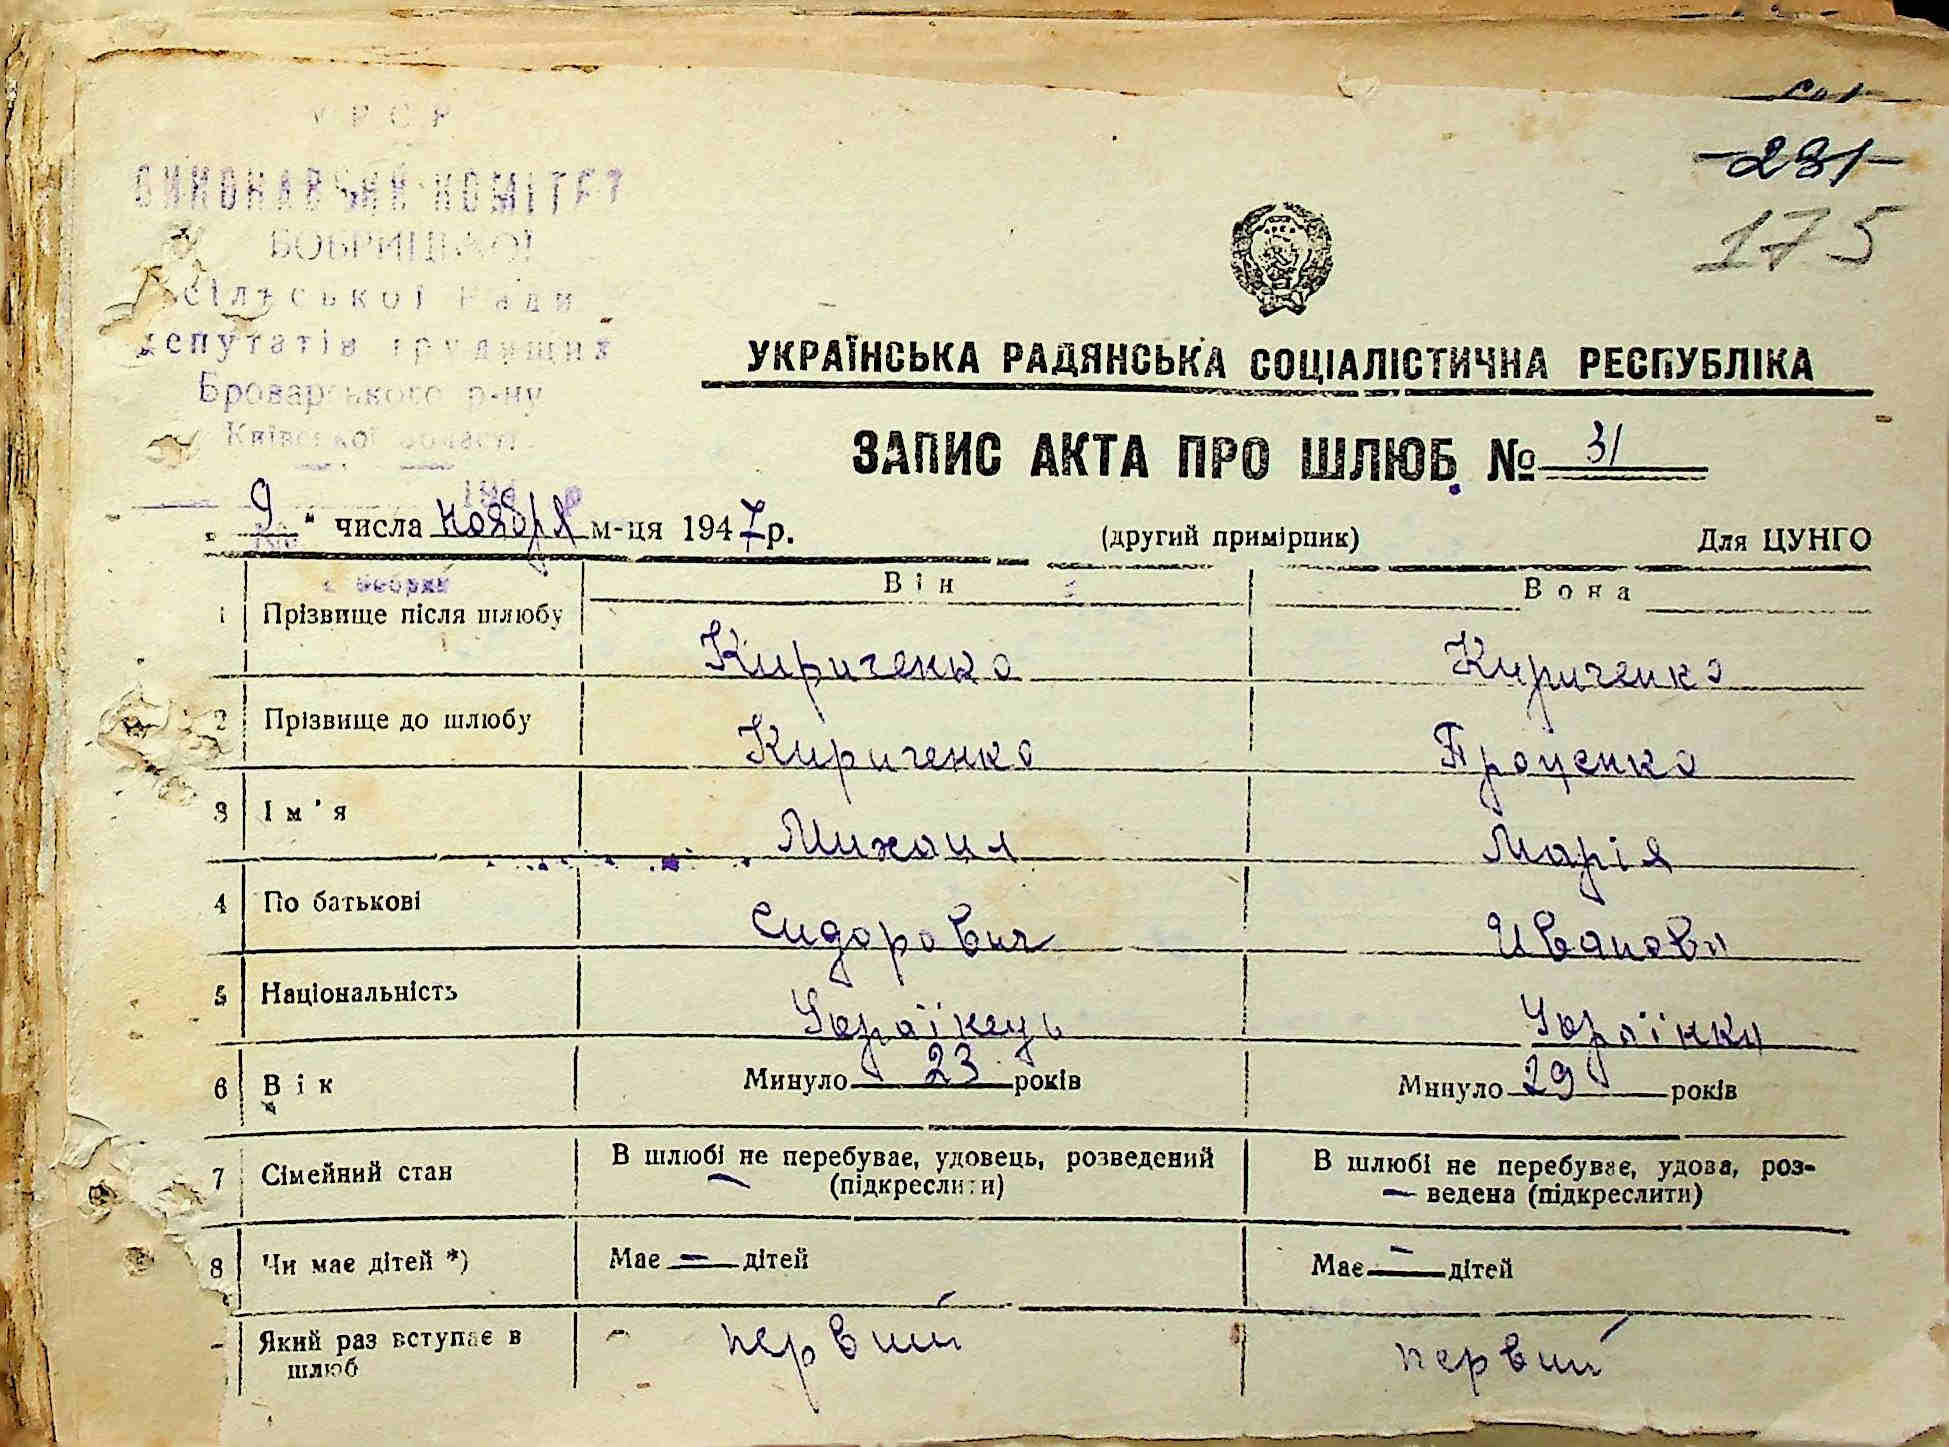 УРСР
ВИКОНАВЧИЙ КОМІТЕТ
БОБРИЦЬКОЇ
сільської Ради
депутатів трудящих
Броварського р-ну
Київської області
281
175
УКРАЇНСЬКА РАДЯНСЬКА СОЦІАЛІСТИЧНА РЕСПУБЛІКА
ЗАПИС АКТА ПРО ШЛЮБ № 31
„ 9 " числа ноября м-ця 1947 р. (другий примірник) Для ЦУНГО
Він Вона
1 Прізвище після шлюбу Кириченко Кириченко
2 Прізвище до шлюбу Кириченко Проценко
3 Ім'я Михаил Марія
4 По батькові Сидорович Ивановн
5 Національність Українець Українка
6 Вік Минуло 23 років Минуло 29 років
7 Сімейний стан В шлюбі не перебуває, удовець, розведений (підкреслити) В шлюбі не перебуває, удова, роз-
ведена (підкреслити)
8 Чи має дітей *) Має — дітей Має — дітей
Який раз вступає в шлюб первий первий